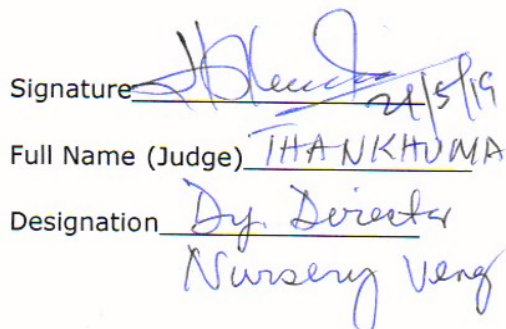 Signature 21/5/19
Full Name (Judge) THANKHUMA
Designation Dy. Director
Nursery Veng